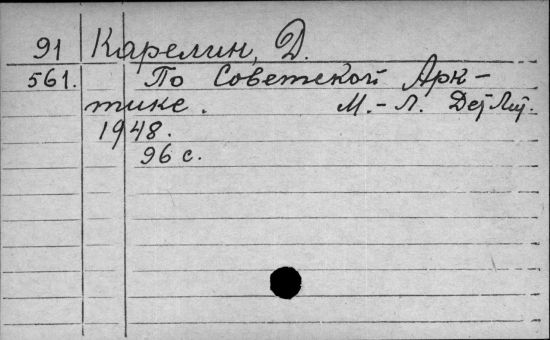 91 Карелин, Д.
561. По Советской Арк-
тике. М.-Л. ДетЛит.
1948.
96 с.